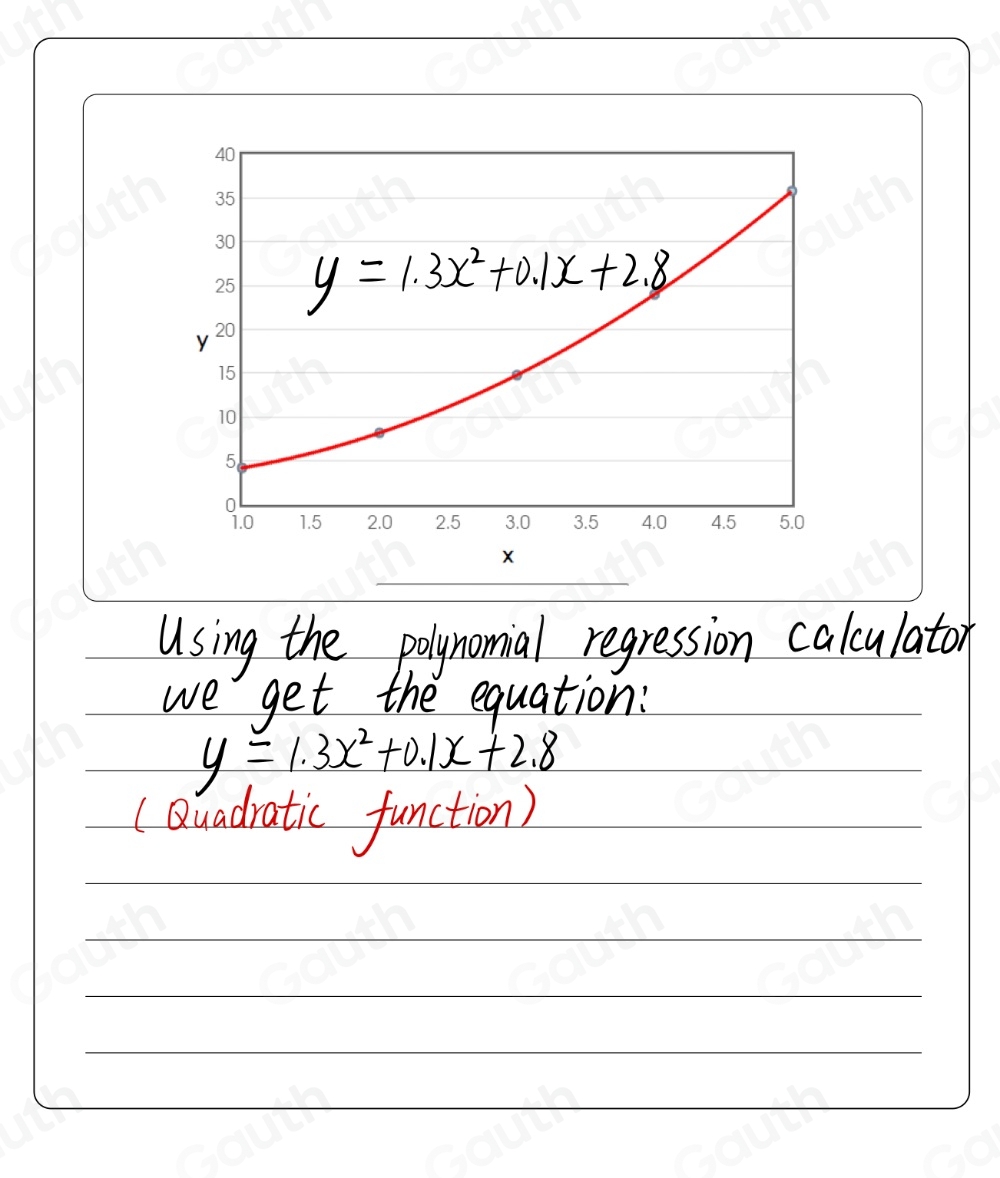 40
35
30
y = 1.3x²+0.1x+2.8
25
y 20
15
10
5
0
1.0 1.5 2.0 2.5 3.0 3.5 4.0 4.5 5.0
x
Using the polynomial regression calculator
we get the equation:
y = 1.3x²+0.1x+2.8
(Quadratic function)
Gauth